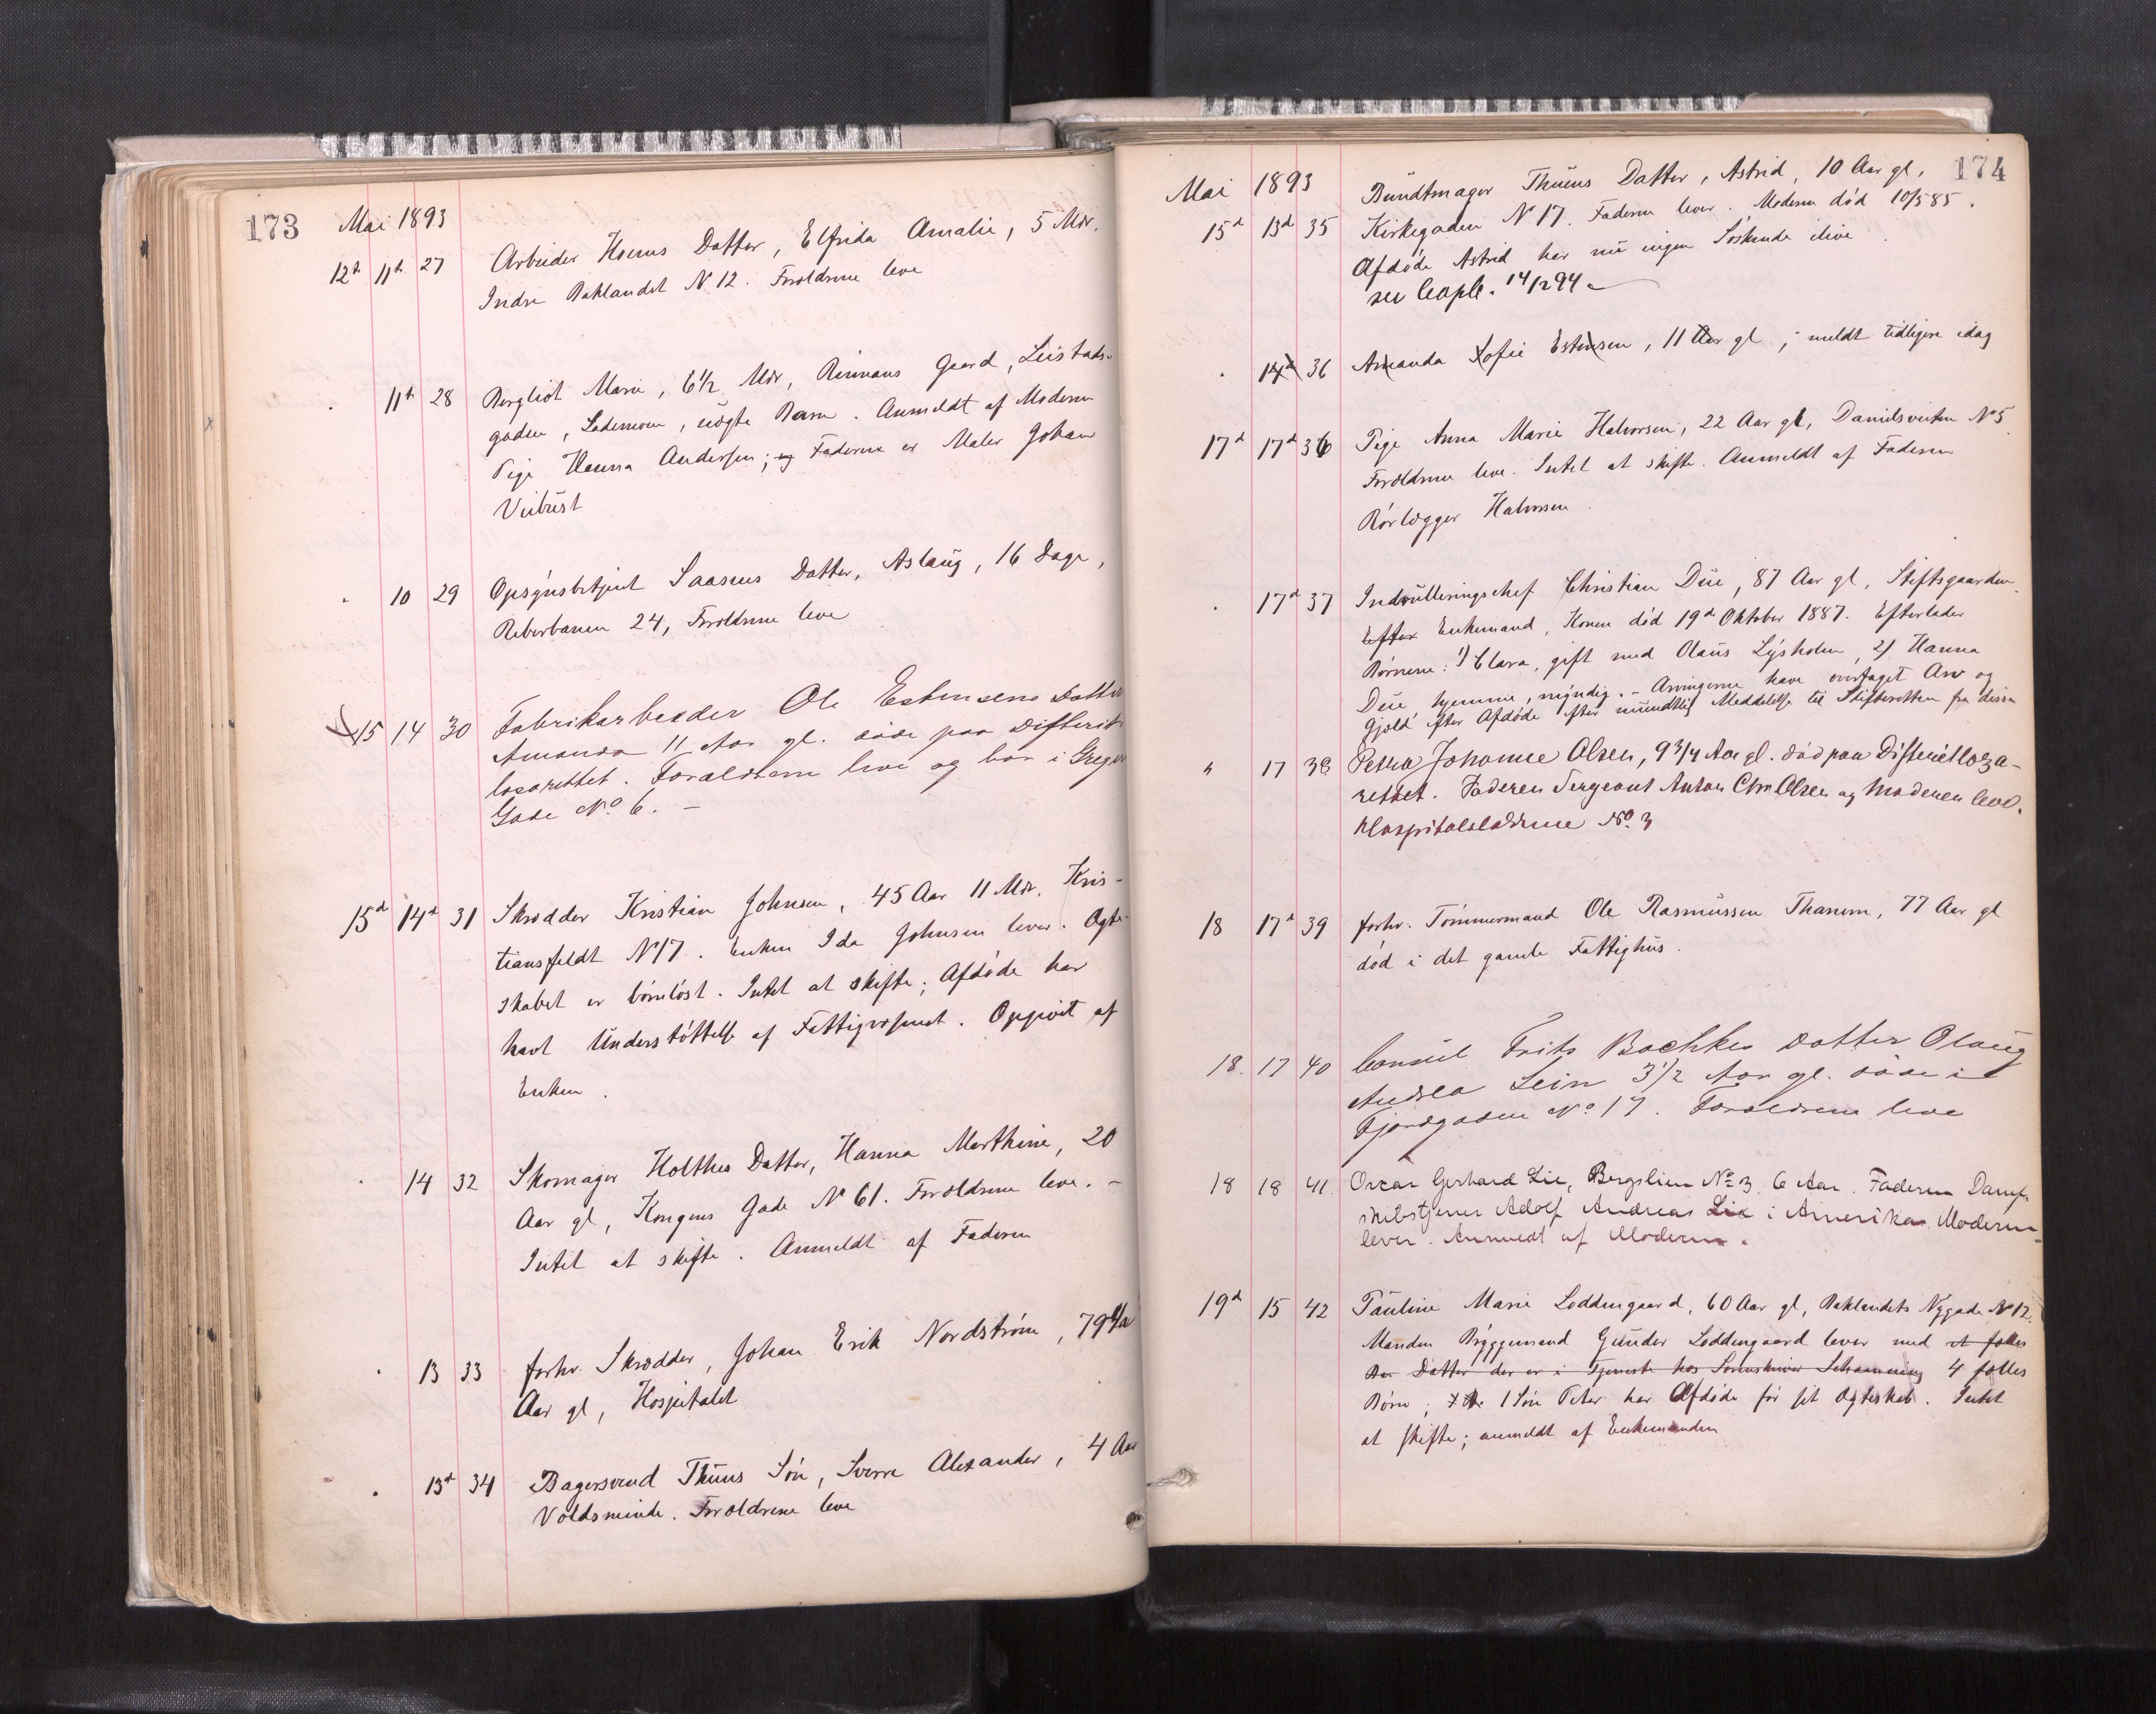 173
Mai 1893
12t 11t 27 Arbeider Hoems Datter, Elfrida Amalie, 5 Mdr.
Indre Baklandet N 12. Forældrene leve
" 11t 28 Bergliot Marie, 6½ Mdr, Rinnans Gaard, Leistads-
gaden, Lademoen, uægte Barn. Anmeldt af Moderen
Pige Hanna Andersen; og Faderen er Maler Johan
Veibust
" 10 29 Opsynsbetjent Saasens Datter, Aslaug, 16 Dage,
Reberbanen 24, Forældrene leve
15 14 30 Fabrikarbeider Ole Estensens Datter
Amanda 11 Aar gl. døde paa Difterit-
lasarettet. Forældrene leve og bor i Gregus
Gade No 6. -
15d 14d 31 Skrædder Kristian Johnsen, 45 Aar 11 Mdr. Kris-
tiansfeldt N 17. Enken Ida Johnsen lever. Ægte-
skabet er børnløst. Intet at skifte; Afdøde har
havt Understøttelse af Fattigvæsenet. Opgivet af
Enken.
" 14 32 Skomager Holthes Datter, Hanna Marthine, 20
Aar gl, Kongens Gade N 61. Forældrene leve. -
Intet at skifte. Anmeldt af Faderen
" 13 33 forhv. Skrædder, Johan Erik Nordstrøm, 79
Aar gl, Hospitalet
" 13d 34 Bagersvend Thuus Søn, Sverre Alexander, 4 Aar
Voldsminde. Forældrene leve
174
Mai 1893
15d 13d 35 Bundtmager Thuens Datter, Astrid, 10 Aar gl,
Kirkegaden N 17. Faderen lever. Moderen død 10/5 85.
Afdøde Astrid har nu ingen Søskende ilive.
14/2 94
" 14d 36 Amanda Sofie Estensen, 11 Aar gl; meldt tidligere idag
17d 17d 36 Pige Anna Marie Halvorsen, 22 Aar gl, Danielsveiten N 5
Forældrene leve. Intet at skifte. Anmeldt af Faderen
Rørlægger Halvorsen.
" 17d 37 Indrulleringschef Christian Due, 87 Aar gl, Stiftsgaarden.
Efter Enkemand, Konen død 19d Oktober 1887. Efterlader
Børnene: 1) Clara, gift med Olaus Lysholm, 2) Hanna
Due, hjemme, myndig. - Arvingerne have overtaget Arv og
Gjæld efter Afdøde efter mundtlig Meddelelse til Skifteretten fra disse
" 17 38 Petra Johanne Olsen, 9 3/4 Aar gl. død paa Difteritlaza-
rettet. Faderen Sergeant Anton Chr Olsen og Moderen leve.
Hospitalsløkkene No 3
18 17d 39 forhv. Tømmermand Ole Rasmussen Thanem, 77 Aar gl
død i det gamle Fattighus.
18. 17 40 Consul Frits Bachkes Datter Olaug
Andrea Lein 3½ Aar gl. døde i
Fjordgaden No 17. Forældrene leve
18 18 41. Oscar Gerhard Lie, Bergslien No 3. 6 Aar. Faderen Damp-
skibstjener Adolf Andreas Lie i Amerika. Moderen
lever. Anmeldt af Moderen.
19d 15 42 Pauline Marie Loddengaard, 60 Aar gl, Baklandets Nygade N 12.
Manden Bryggemand Gunder Loddengaard lever med et fælles
Bar Datter der er i Tjeneste hos Sorenskriver Schanning 4 fælles
Børn; 1 Søn Peter har Afdøde før sit Ægteskab. Intet
at skifte; anmeldt af Enkemanden